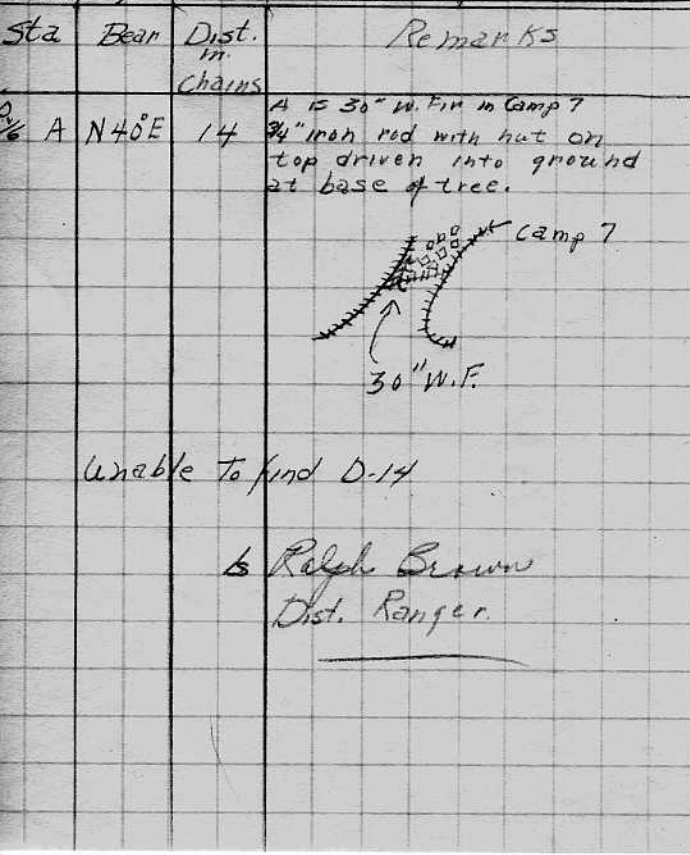 Sta Bear Dist. in. Chains Remarks
A N40°E 14
A is 30" W. Fir in Camp 7
3/4" iron rod with nut on
top driven into ground
at base of tree.
Camp 7
30" W.F.
Unable To find D-14
Ralph Brown
Dist. Ranger.